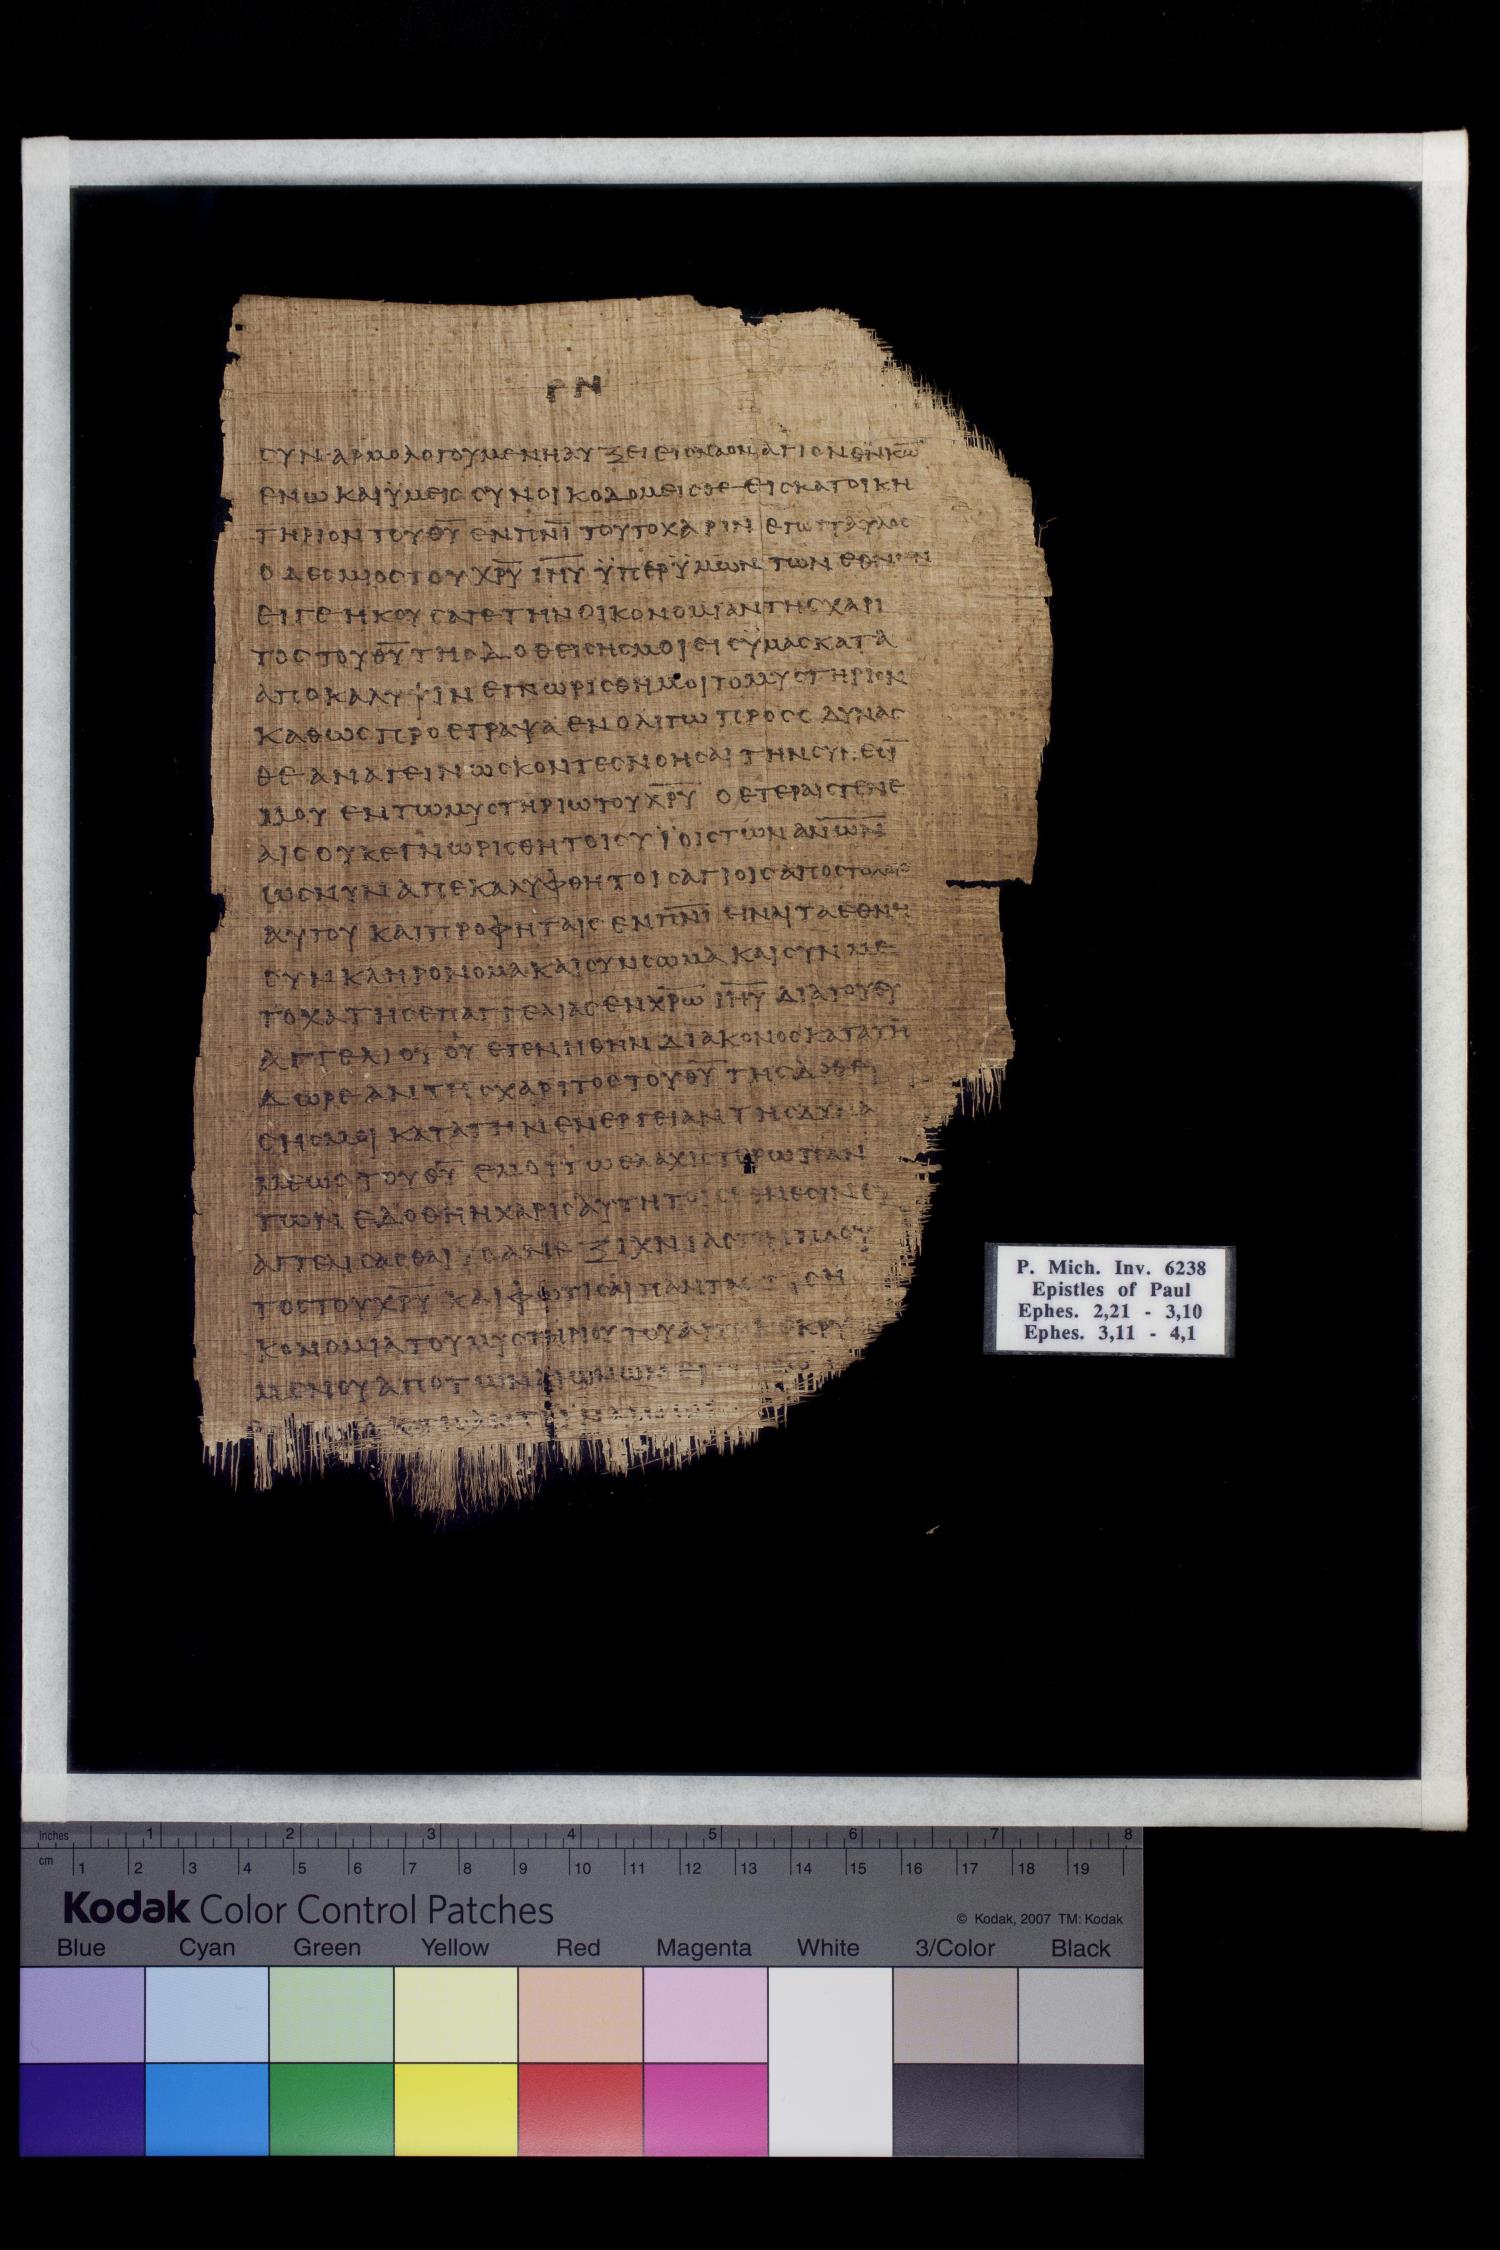 ΡΝ
ϹΥΝΑΡΜΟΛΟΓΟΥΜΕΝΗ ΑΥΞΕΙ ΕΙϹ ΝΑΟΝ ΑΓΙΟΝ ΕΝ Κ̅Ω̅
ΕΝ Ω ΚΑΙ ΫΜΕΙϹ ϹΥΝΟΙΚΟΔΟΜΕΙϹΘΕ ΕΙϹ ΚΑΤΟΙΚΗ
ΤΗΡΙΟΝ ΤΟΥ Θ̅Υ̅ ΕΝ Π̅Ν̅Ι̅ ΤΟΥΤΟ ΧΑΡΙΝ ΕΓΩ ΠΑΥΛΟϹ
Ο ΔΕϹΜΙΟϹ ΤΟΥ Χ̅Ρ̅Υ̅ Ι̅Η̅Υ̅ ΫΠΕΡ ΫΜΩΝ ΤΩΝ ΕΘΝΩΝ
ΕΙ ΓΕ ΗΚΟΥϹΑΤΕ ΤΗΝ ΟΙΚΟΝΟΜΙΑΝ ΤΗϹ ΧΑΡΙ
ΤΟϹ ΤΟΥ Θ̅Υ̅ ΤΗϹ ΔΟΘΕΙϹΗϹ ΜΟΙ ΕΙϹ ΫΜΑϹ ΚΑΤΑ
ΑΠΟΚΑΛΥΨΙΝ ΕΓΝΩΡΙϹΘΗ ΜΟΙ ΤΟ ΜΥϹΤΗΡΙΟΝ
ΚΑΘΩϹ ΠΡΟΕΓΡΑΨΑ ΕΝ ΟΛΙΓΩ ΠΡΟϹ Ο ΔΥΝΑϹ
ΘΕ ΑΝΑΓΕΙΝΩϹΚΟΝΤΕϹ ΝΟΗϹΑΙ ΤΗΝ ϹΥΝΕϹΙ̅
ΜΟΥ ΕΝ ΤΩ ΜΥϹΤΗΡΙΩ ΤΟΥ Χ̅Ρ̅Υ̅ Ο ΕΤΕΡΑΙϹ ΓΕΝΕ
ΑΙϹ ΟΥΚ ΕΓΝΩΡΙϹΘΗ ΤΟΙϹ ΥΪΟΙϹ ΤΩΝ Α̅Ν̅Ω̅Ν̅
ΩϹ ΝΥΝ ΑΠΕΚΑΛΥΦΘΗ ΤΟΙϹ ΑΓΙΟΙϹ ΑΠΟϹΤΟΛΟΙϹ
ΑΥΤΟΥ ΚΑΙ ΠΡΟΦΗΤΑΙϹ ΕΝ Π̅Ν̅Ι̅ ΕΙΝΑΙ ΤΑ ΕΘΝΗ
ϹΥΝΚΛΗΡΟΝΟΜΑ ΚΑΙ ϹΥΝϹΩΜΑ ΚΑΙ ϹΥΝΜΕ
ΤΟΧΑ ΤΗϹ ΕΠΑΓΓΕΛΙΑϹ ΕΝ Χ̅Ρ̅Ω̅ Ι̅Η̅Υ̅ ΔΙΑ ΤΟΥ ΕΥ
ΑΓΓΕΛΙΟΥ ΟΥ ΕΓΕΝΗΘΗΝ ΔΙΑΚΟΝΟϹ ΚΑΤΑ ΤΗ
ΔΩΡΕΑΝ ΤΗϹ ΧΑΡΙΤΟϹ ΤΟΥ Θ̅Υ̅ ΤΗϹ ΔΟΘΕΙ
ϹΗϹ ΜΟΙ ΚΑΤΑ ΤΗΝ ΕΝΕΡΓΕΙΑΝ ΤΗϹ ΔΥΝΑ
ΜΕΩϹ ΤΟΥ Θ̅Υ̅ ΕΜΟΙ ΤΩ ΕΛΑΧΙϹΤΟΤΕΡΩ ΠΑΝ
ΤΩΝ ΕΔΟΘΗ Η ΧΑΡΙϹ ΑΥΤΗ ΤΟΙϹ ΕΘΝΕϹΙΝ ΕΥ
ΑΓΓΕΛΙϹΑϹΘΑΙ ΑΝΕΞΙΧΝΙΑϹΤΟΝ ΠΛΟΥ
ΤΟϹ ΤΟΥ Χ̅Ρ̅Υ̅ ΚΑΙ ΦΩΤΙϹΑΙ ΠΑΝΤΑϹ
ΚΟΝΟΜΙΑ ΤΟΥ ΜΥϹΤΗΡΙΟΥ ΤΟΥ ΑΠΟΚΕΚΡΥ
ΜΕΝΟΥ ΑΠΟ ΤΩΝ ΑΙΩΝΩΝ ΕΝ
P. Mich. Inv. 6238
Epistles of Paul
Ephes. 2,21 - 3,10
Ephes. 3,11 - 4,1
inches 1 2 3 4 5 6 7 8
cm 1 2 3 4 5 6 7 8 9 10 11 12 13 14 15 16 17 18 19
Kodak Color Control Patches
© Kodak, 2007 TM: Kodak
Blue Cyan Green Yellow Red Magenta White 3/Color Black